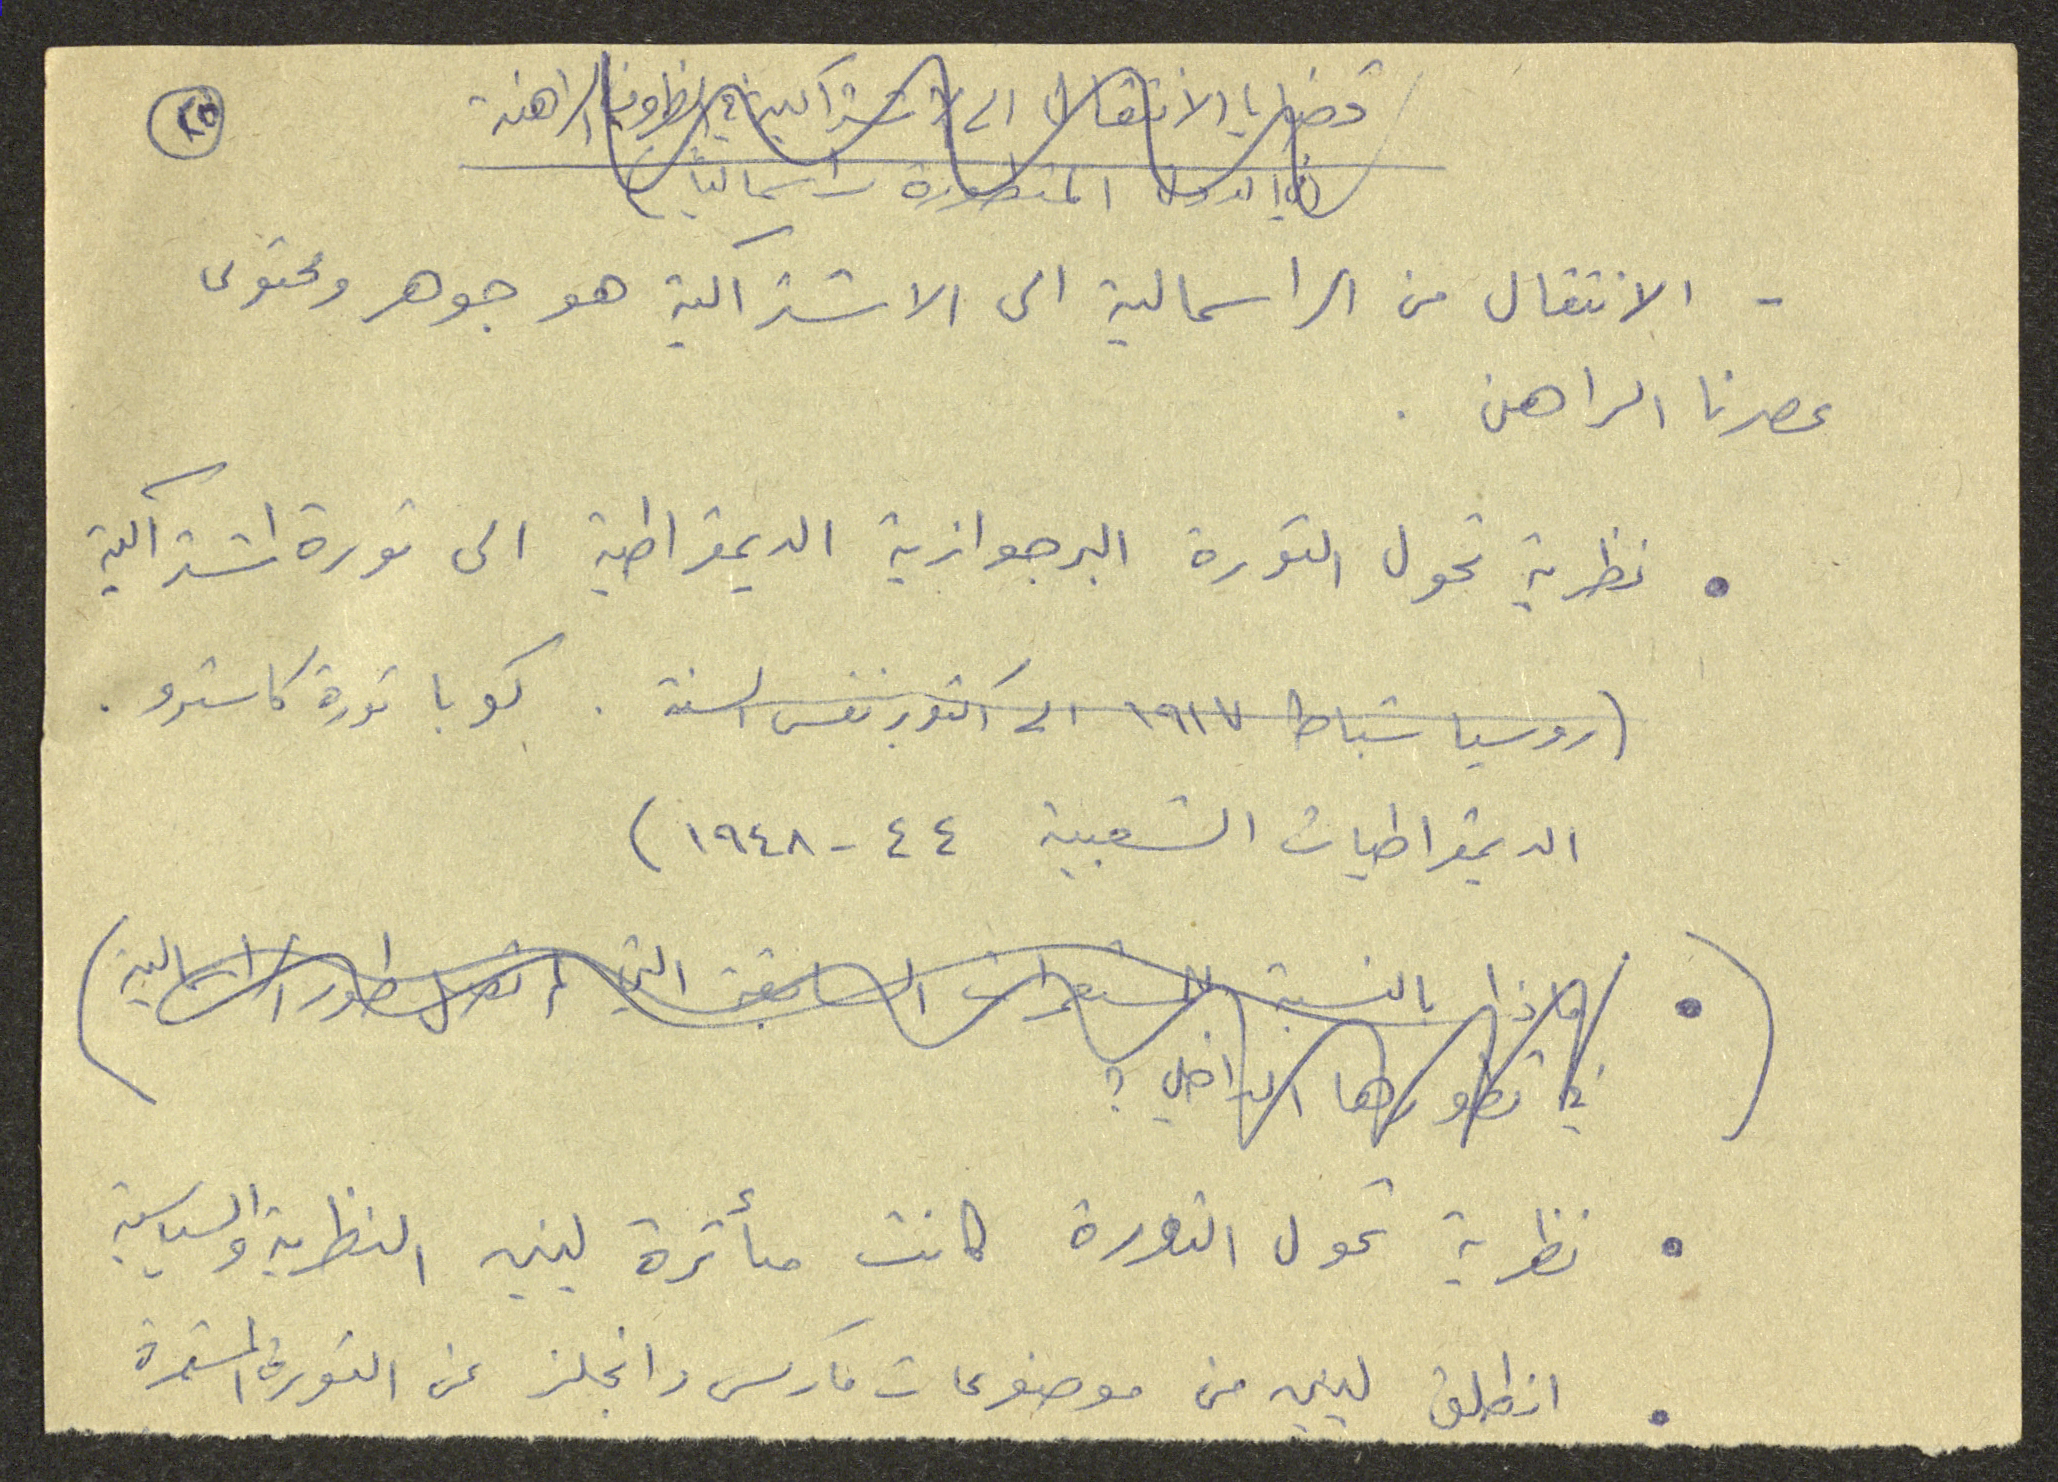 ٢٥
قضايا الانتقال الى الاشتراكية في الظروف الراهنة
(في الدول المتطورة رأسمالياً)
- الانتقال من الراسمالية الى الاشتراكية هو جوهر ومحتوى
عصرنا الراهن .
• نظرية تحول الثورة البرجوازية الديمقراطية الى ثورة اشتراكية
(روسيا شباط ١٩١٧ الى اكتوبر نفس السنة . كوبا ثورة كاسترو .
الديمقراطيات الشعبية ٤٤ - ١٩٤٨)
( • ماذا بالنسبة للمستعمرات السابقة التي لم تصل طور الراسمالية )
في تطورها الداخلي ؟
• نظرية تحول الثورة كانت مأثرة لينين النظرية والسياسية
• انطلق لينين من موضوعات ماركس وانجلز عن الثورة المستمرة